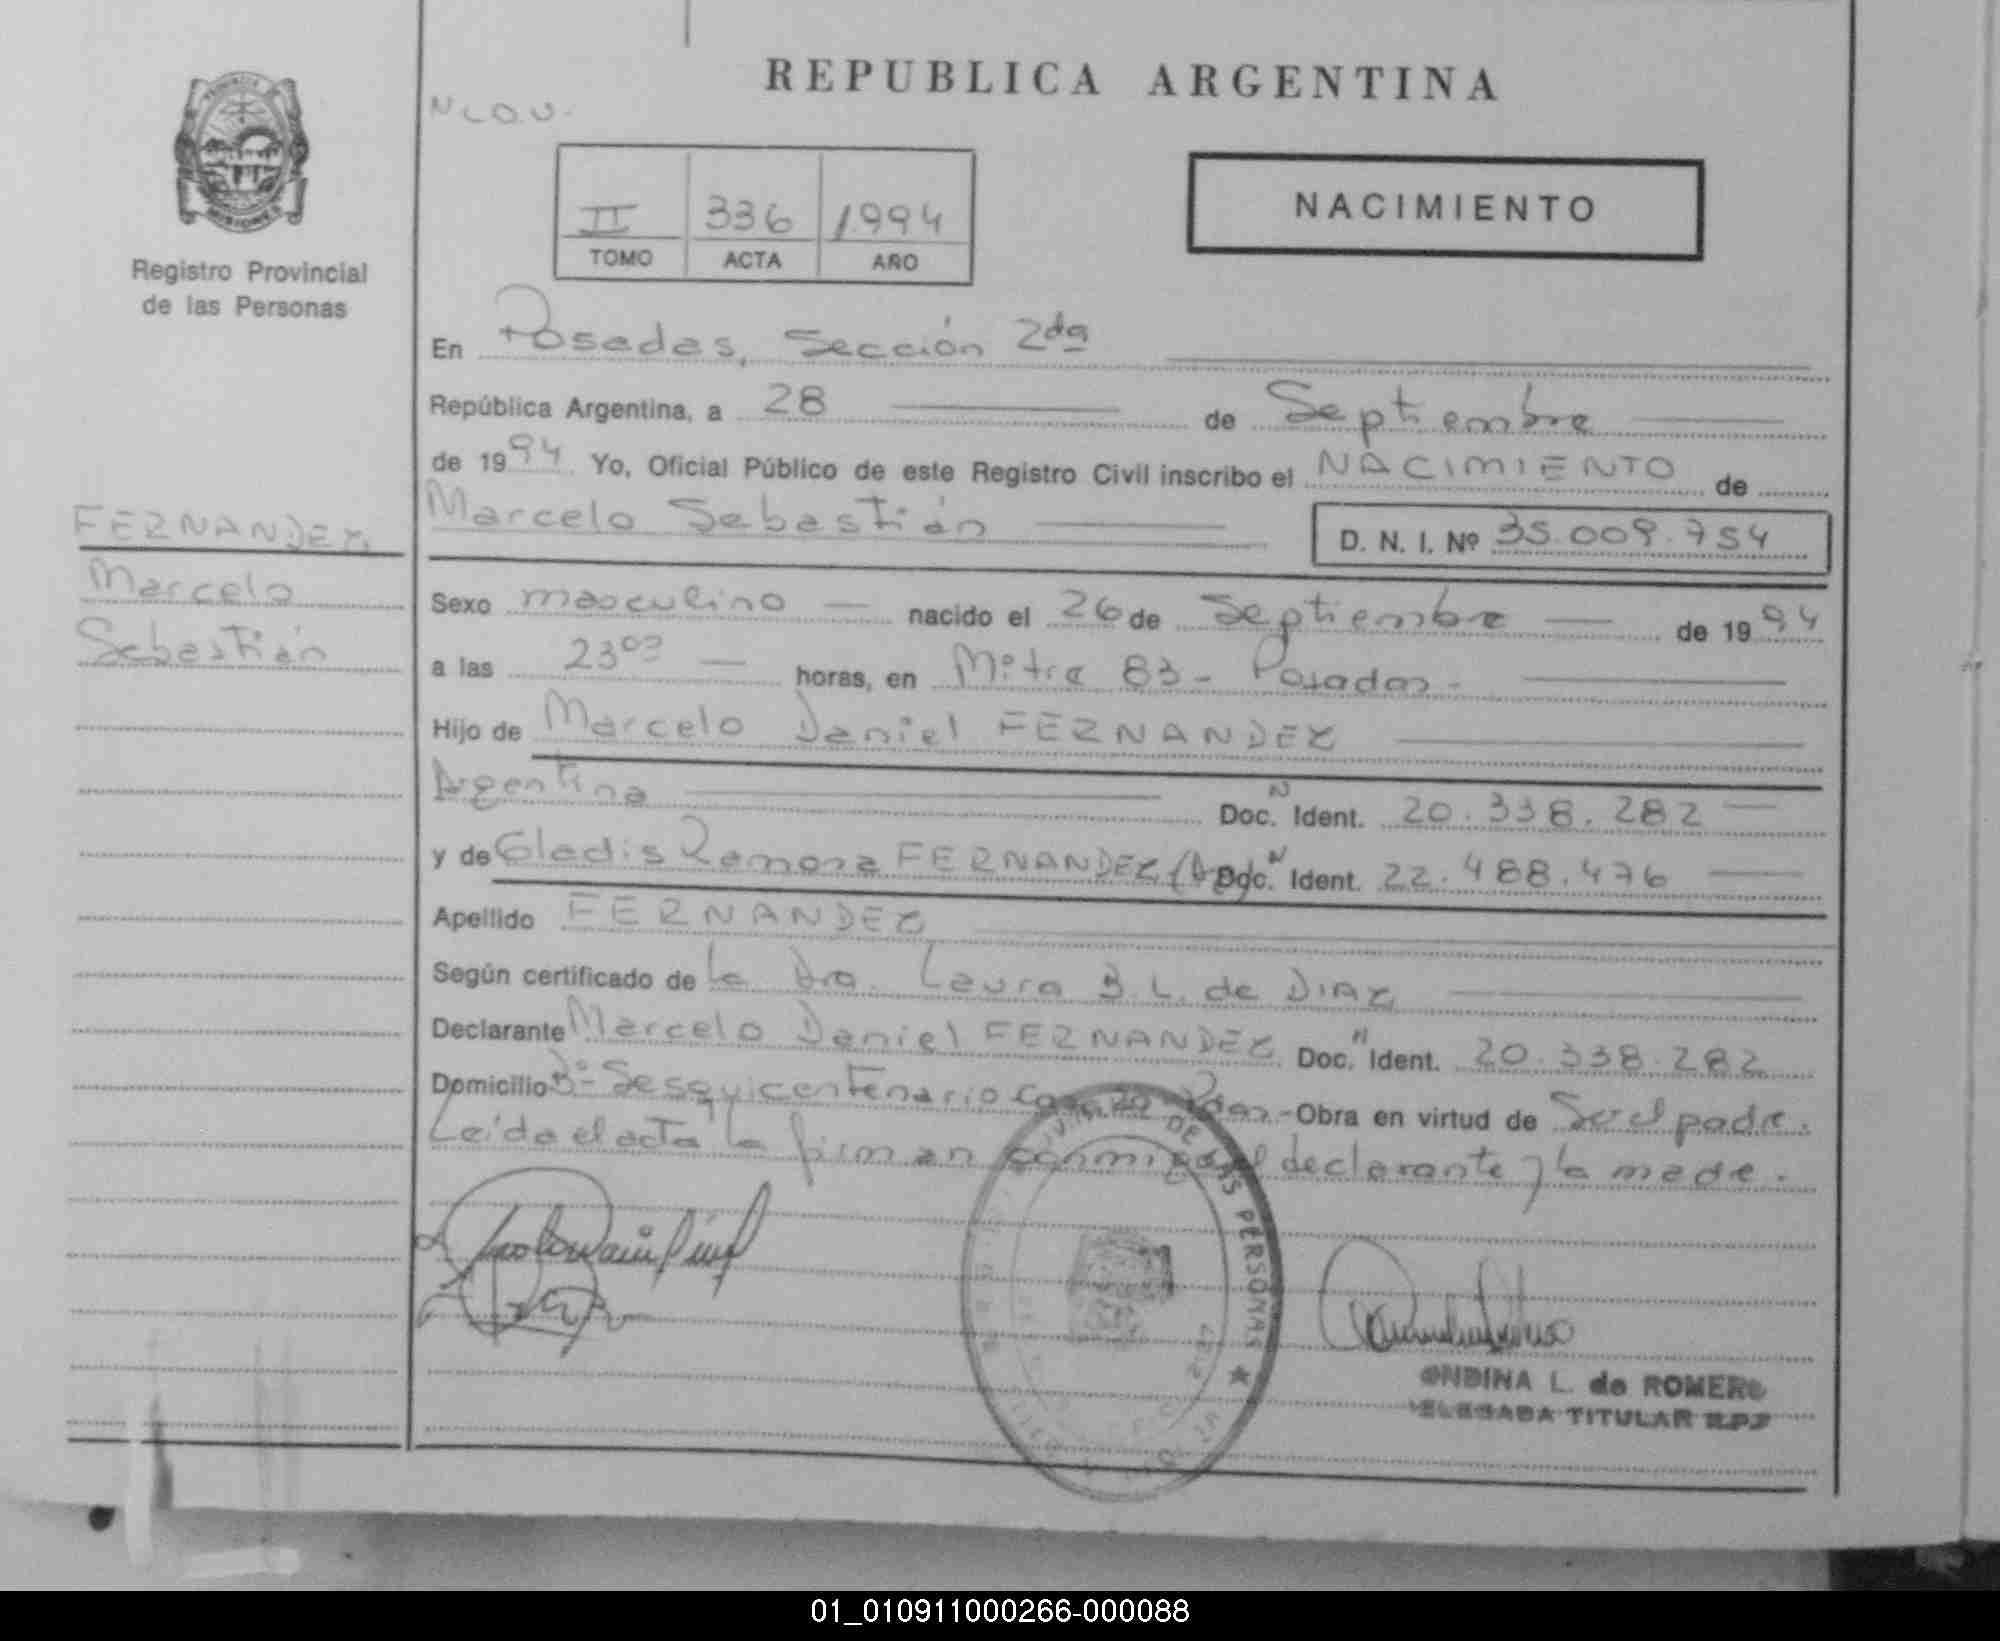 REPUBLICA ARGENTINA
N L.O.U.
II 336 1994
TOMO ACTA AÑO
NACIMIENTO
Registro Provincial
de las Personas
En Posadas, Sección 2da
República Argentina, a 28 de Septiembre
de 1994 Yo, Oficial Público de este Registro Civil inscribo el NACIMIENTO de
Marcelo Sebastián D. N. I. Nº 35.009.754
FERNANDEZ
Marcelo
Sebastián
Sexo masculino nacido el 26 de Septiembre de 1994
a las 23 horas, en Mitre 83 - Posadas -
Hijo de Marcelo Daniel FERNANDEZ
Argentina Doc. N Ident. 20.338.282
y de Gladis Ramona FERNANDEZ (Arg) Doc. N Ident. 22.488.476
Apellido FERNANDEZ
Según certificado de la Dra. Laura B. L. de DIAZ
Declarante Marcelo Daniel FERNANDEZ Doc. N Ident. 20.338.282
Domicilio Bº Sesquicentenario Obra en virtud de Ser el padre.
Leída el acta la firman conmigo el declarante y la madre.
DE LAS PERSONAS
ONDINA L. de ROMERO
DELEGADA TITULAR R.P.P
01_010911000266-000088